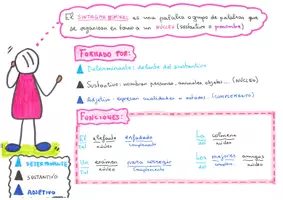 El SINTAGMA NOMINAL es una palabra o grupo de palabras que
se organizan en torno a un NÚCLEO (sustantivo o pronombre)
FORMADO POR:
Determinante: delante del sustantivo
Sustantivo: nombran personas, animales, objetos... (NÚCLEO)
Adjetivo: expresan cualidades o estados (COMPLEMENTO)
FUNCIONES:
El elefante enfadado
Det núcleo complemento
La colmena
Det núcleo
Un examen para conseguir
Det núcleo complemento
Los mejores amigos
Det núcleo
DETERMINANTE
SUSTANTIVO
ADJETIVO